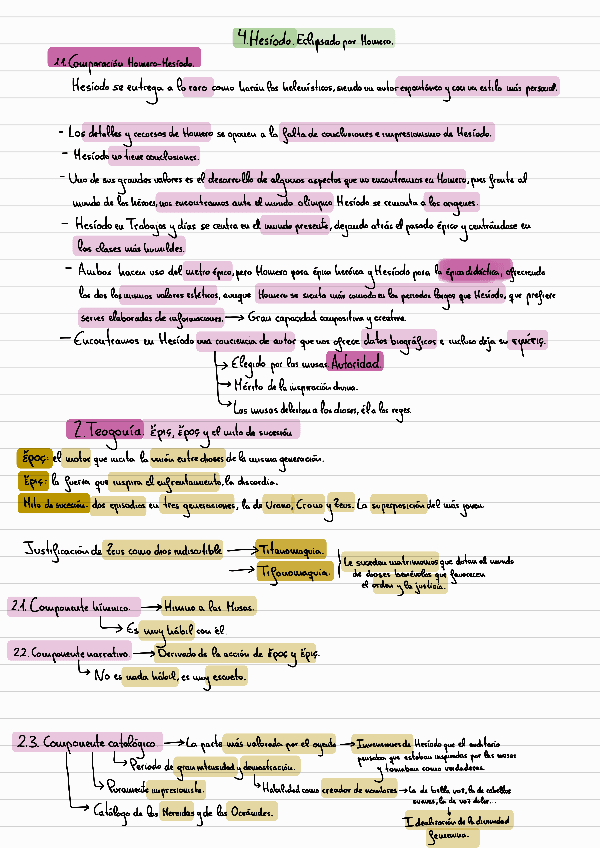 4.Hesíodo. Eclipsado por Homero.
1.1. Comparación Homero-Hesíodo.
Hesíodo se entrega a lo raro como harán los helenísticos, siendo un autor espontáneo y con un estilo más personal.
- Los detalles y recursos de Homero se oponen a la falta de conclusiones e impresionismo de Hesíodo.
- Hesíodo no tiene conclusiones.
- Uno de sus grandes valores es el desarrollo de algunos aspectos que no encontramos en Homero, pues frente al
mundo de los héroes, nos encontramos ante el mundo olímpico Hesíodo se remonta a los orígenes.
- Hesíodo en Trabajos y días se centra en el mundo presente, dejando atrás el pasado épico y centrándose en
las clases más humildes.
- Ambos hacen uso del metro épico, pero Homero para épica heroica y Hesíodo para la épica didáctica, ofreciendo
los dos los mismos valores estéticos, aunque Homero se siente más comodo en los periodos largos que Hesíodo, que prefiere
series elaboradas de informaciones. → Gran capacidad compositiva y creativa.
- Encontramos en Hesíodo una conciencia de autor que nos ofrece datos biográficos e incluso deja su
→ Elegido por las musas. Autoridad
→ Mérito de la inspiración divina.
→ Las musas deleitan a los dioses, él a los reyes.
2. Teogonía Ἔρις, ἔρος y el mito de sucesión
Ἔρος: el motor que incita la unión entre dioses de la misma generación.
Ἔρις: la fuerza que inspira el enfrentamiento, la discordia.
Mito de sucesión: dos episodios en tres generaciones, la de Urano, Crono y Zeus. La superposición del más joven
Justificación de Zeus como dios indiscutible → Titanomaquia.
→ Tifonomaquia.
Le suceden matrimonios que dotan al mundo
de dioses benévolos que favorecen
el orden y la justicia.
2.1. Componente hímnico. → Himno a las Musas.
→ Es muy hábil con él.
2.2. Componente narrativo. → Derivado de la acción de ἔρος y ἔρις.
→ No es nada hábil, es muy escueto.
2.3. Componente catalógico → La parte más valorada por el oyente → Invenciones de Hesíodo que el auditorio
pensaba que estaban inspiradas por las musas
y tomaban como verdaderas.
→ Periodo de gran intensidad y demostración.
→ Habilidad como creador de nombres → la de bella voz, la de cabellos
suaves, la de voz dulce...
→ Puramente impresionista.
→ Catálogo de las Nereidas y de las Oceánides.
Idealización de la divinidad
femenina.